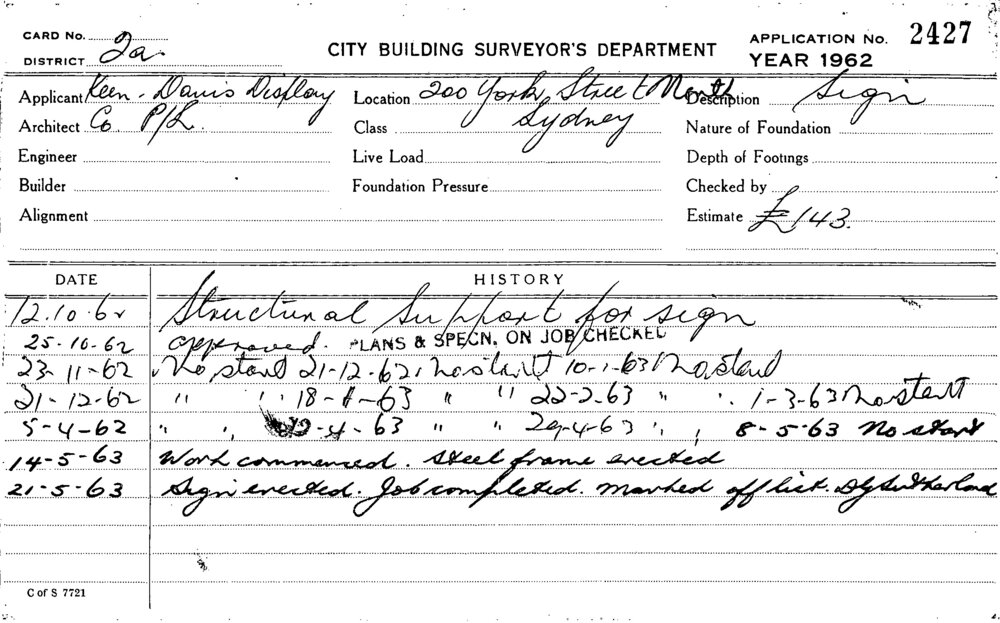 CARD No.
DISTRICT 2a.
CITY BUILDING SURVEYOR'S DEPARTMENT
APPLICATION No. 2427
YEAR 1962
Applicant Keen-Davis Display Location 200 York Street North Description Sign
Architect Co. P/L. Class Sydney Nature of Foundation
Engineer Live Load Depth of Footings
Builder Foundation Pressure Checked by
Alignment Estimate £143.
DATE HISTORY
12.10.62 Structural Support for sign
25-10-62 approved. PLANS & SPECN. ON JOB CHECKED
23-11-62 No start 21-12-62 No start 10-1-63 No start
21-12-62 " " 18-1-63 " " 22-2-63 " " 1-3-63 No start
5-4-62 " " 4-63 " " 29-4-63 " " 8-5-63 No start
14-5-63 Work commenced. Steel frame erected
21-5-63 Sign erected. Job completed. Marked off list. Sutherland
C of S 7721